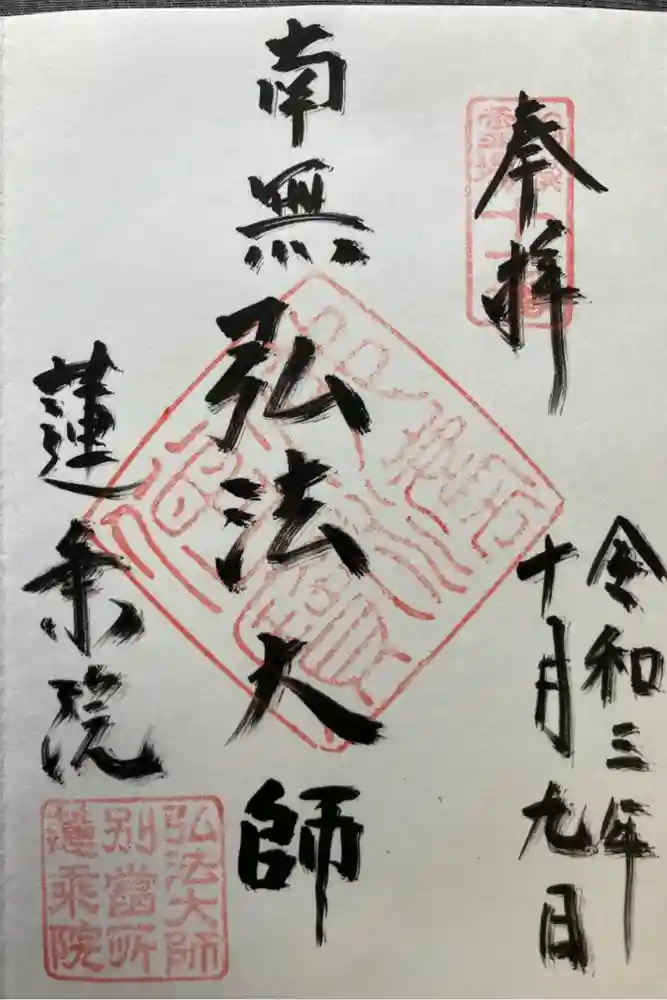 奉拝
令和三年
十月九日
南無弘法大師
蓮乗院
弘法大師
別當所
蓮乗院